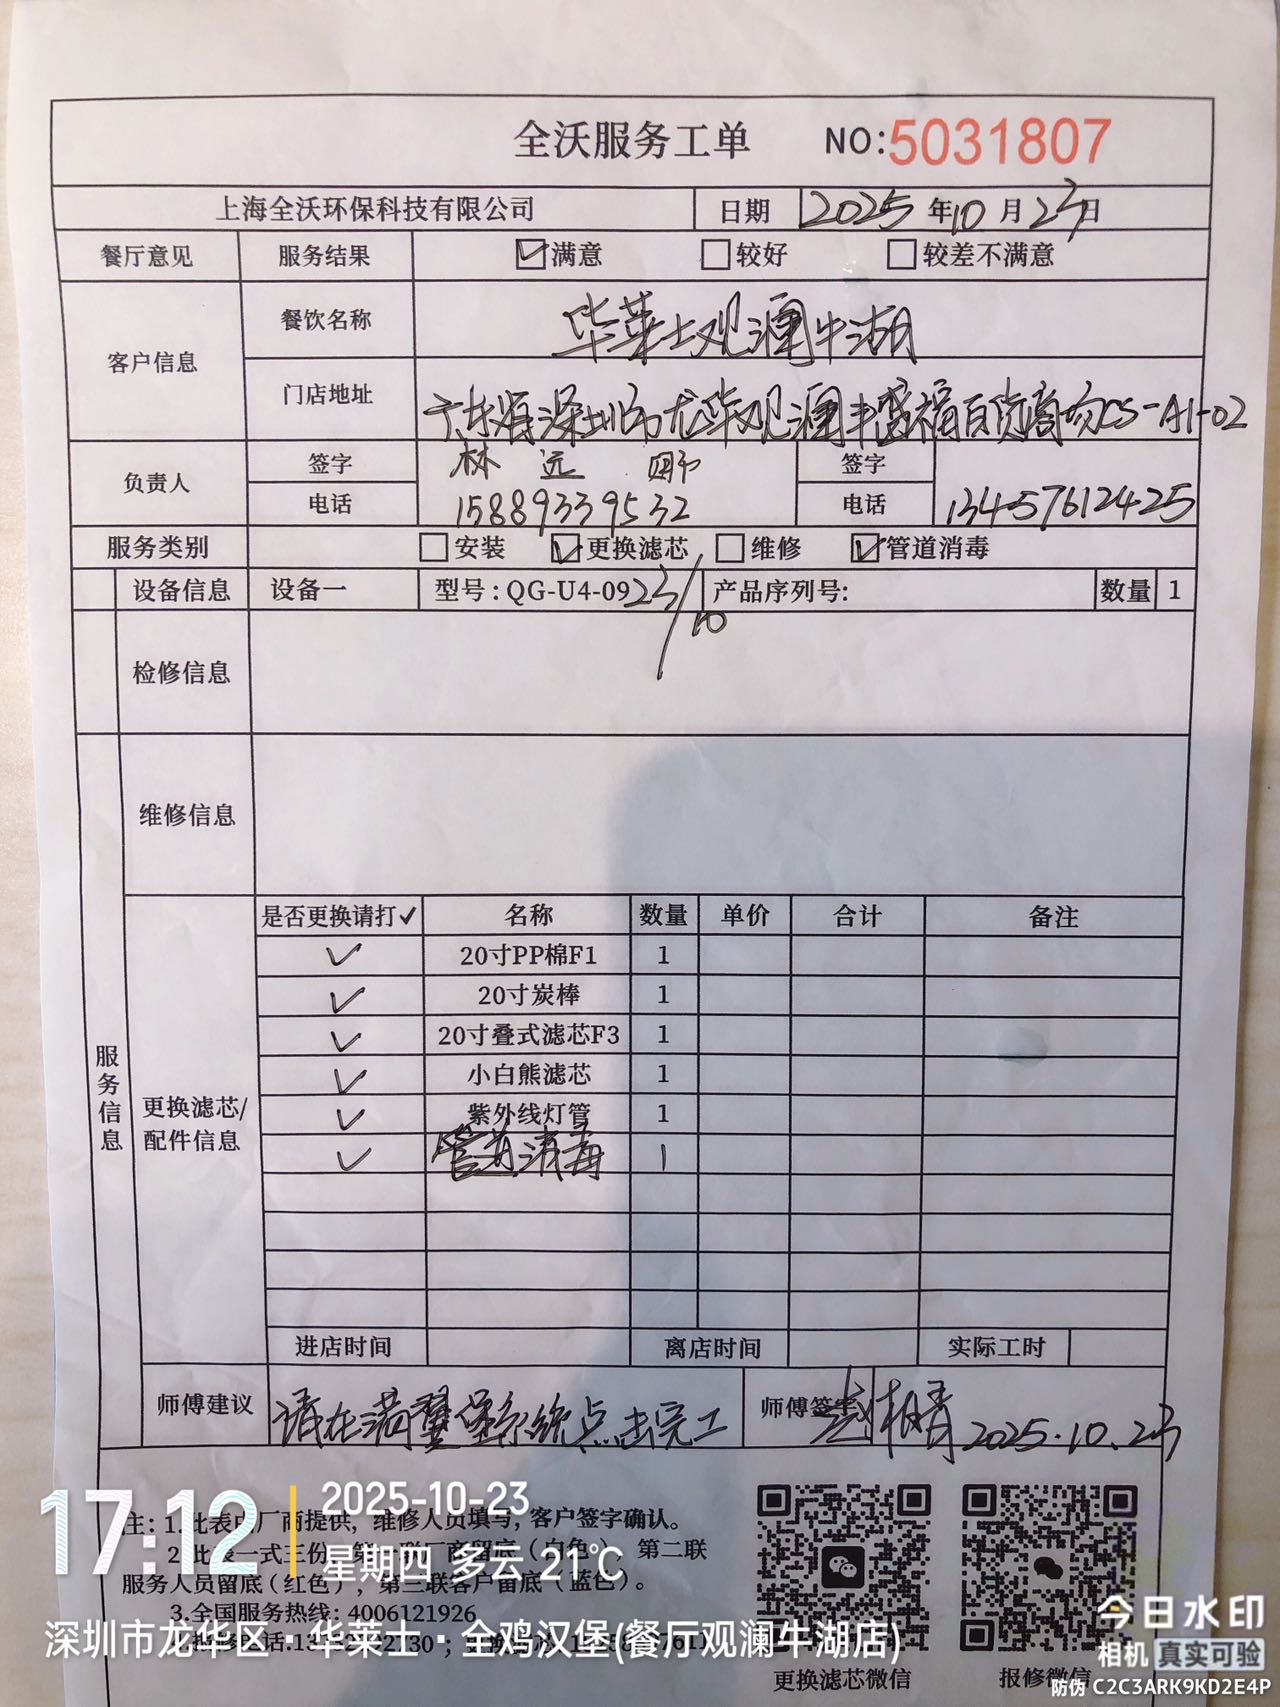 全沃服务工单 NO:5031807
上海全沃环保科技有限公司 日期 2025年10月23日
餐厅意见 服务结果 满意 较好 较差不满意
客户信息 餐饮名称 华莱士观澜牛湖
门店地址 广东省深圳市龙华观澜丰盛福百货商场CS-A1-02
负责人 签字 林远 签字
电话 15889339532 电话 13457612425
服务类别 安装 更换滤芯 维修 管道消毒
设备信息 设备一 型号:QG-U4-09 23/10 产品序列号: 数量 1
检修信息
维修信息
服务信息
更换滤芯/配件信息
是否更换请打✓ 名称 数量 单价 合计 备注
✓ 20寸PP棉F1 1
✓ 20寸炭棒 1
✓ 20寸叠式滤芯F3 1
✓ 小白熊滤芯 1
✓ 紫外线灯管 1
✓ 管道消毒 1
进店时间 离店时间 实际工时
师傅建议 请在满翼堡系统点击完工 师傅签字 2025.10.23
注: 1.此表由厂商提供, 维修人员填写, 客户签字确认。
2.此表一式三份, 第一联厂商留底(白色), 第二联
服务人员留底(红色), 第三联客户留底(蓝色)。
3.全国服务热线: 4006121926
更换滤芯微信 报修微信
17:12 2025-10-23
星期四 多云 21℃
深圳市龙华区·华莱士·全鸡汉堡(餐厅观澜牛湖店)
今日水印
相机 真实可验
防伪 C2C3ARK9KD2E4P